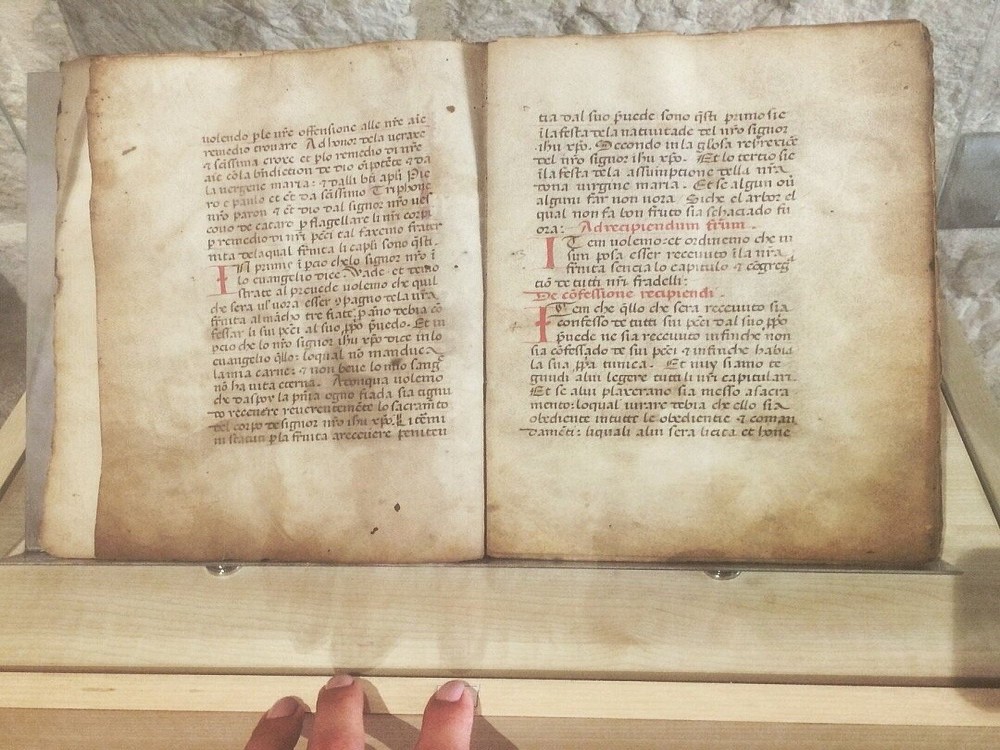 volendo ple nr̄e offensione alle nr̄e aīe
remedio trouare. Ad honor dela uerax̄e
⁊ sc̄issima croxe et p̄lo remedio di nr̄e
aīe cola bn̄diction de dio oīpotēte ⁊ da
la uergene maria: ⁊ dalli bt̄i apl̄i Pie
ro e paulo et ēt da sc̄issimo Triphone
nr̄o paron ⁊ ēt dio dal signor nr̄o ues
couo de cataro p̄ flagellare li nr̄i corpi
p̄ remedio di nr̄i pc̄ci tal faxemo frater
nita delaqual fr̄nita li capli sono q̄sti.
In primis ī p̄cio chelo signor nr̄o ī
lo euangelio dice Vade et demo
strate al preuede uolemo che qual
che sera uīuora esser 9pagno dela nr̄a
fr̄nita almācho tre fiate p̄ año debia cō
fessar li sui pc̄ci al suo ꝓpo p̄uedo. Et in
p̄cio che lo nr̄o signor ihu xp̄o dice inlo
euangelio q̄llo: loqual nō manduca
la mia carne: ⁊ non beue lo mio sang
nō ha uita eterna. Adonqua uolemo
che daspoy la p̄ria ogno fiada sia tignu
to receuere reuerentemēte lo sacram̄to
del corpo de signor nr̄o ihu xp̄o. Li tēmi
ni statuti p̄la fr̄nita areceuere penitēn
tia dal suo p̄uede sono q̄sti primo sie
ī la festa dela natiuitade del nr̄o signor
ihu xp̄o. Secondo in la gloriosa
del nr̄o signor ihu xp̄o. Et lo tertio sie
ī la festa dela assumptione della nr̄a
dona uirgine maria. Et se algun oū
alguni far non uora. Siche el arbor el
qual non fa bon fruto sia schaciado fu
ora: Ad recipiendum fr̄um.
Item uolemo et ordinemo che ni
sun posa esser receuuto ī la nr̄a
fr̄nita sencia lo capitulo ⁊ cōgreg
ciō de tutti nr̄i fradelli:
De cōfessione recipiendi.
Item che q̄llo che sera receuuto sia
confesso de tutti sui pc̄ci dal suo ꝓpo
p̄uede ne sia receuuto infinche non
sia cōfessado de sui pc̄ci ⁊ infinche habia
la sua ꝓpa tunica. Et nuy siamo te
gnudi alui legere tutti li nr̄i capitulari.
Et se alui plaxerano sia messo asacra
mento: loqual iurare debia che ello sia
obediente intutte le obedientie ⁊ coman
damēti: liquali alui sera licita et hone